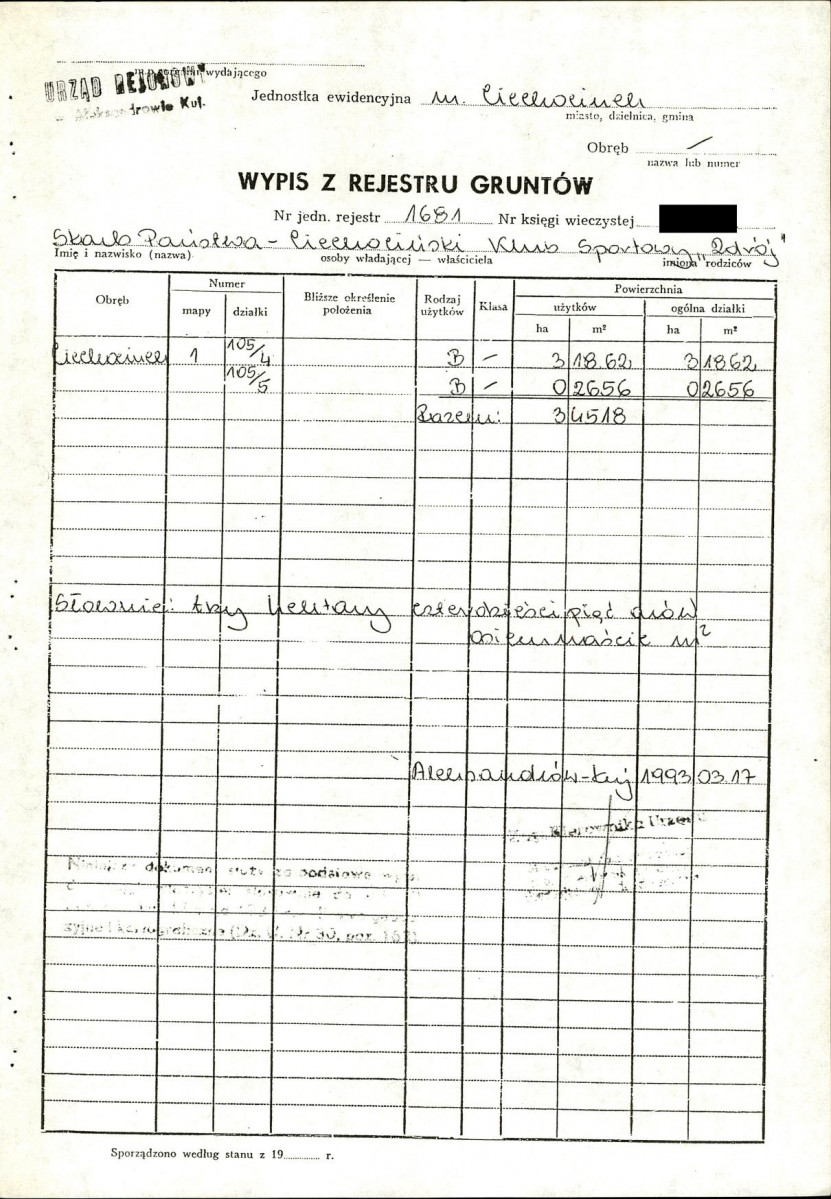 wydającego
URZĄD REJONOWY
w Aleksandrowie Kuj.
Jednostka ewidencyjna m. Ciechocinek
miasto, dzielnica, gmina
Obręb /
nazwa lub numer
WYPIS Z REJESTRU GRUNTÓW
Nr jedn. rejestr 1681 Nr księgi wieczystej
Skarb Państwa - Ciechociński Klub Sportowy „Zdrój"
Imię i nazwisko (nazwa) osoby władającej — właściciela imiona rodziców
Obręb Numer Bliższe określenie położenia Rodzaj użytków Klasa Powierzchnia
mapy działki użytków ogólna działki
ha m² ha m²
Ciechocinek 1 105/4 B - 3 1862 3 1862
105/5 B - 0 2656 0 2656
Razem: 3 4518
Słownie: trzy hektary czterdzieści pięć arów
osiemnaście m²
Aleksandrów-Kuj 1993.03.17
Kierownika Urzędu
Niniejszy dokument służy za podstawę
(Dz. U. Nr 30, poz. 163)
Sporządzono według stanu z 19 r.